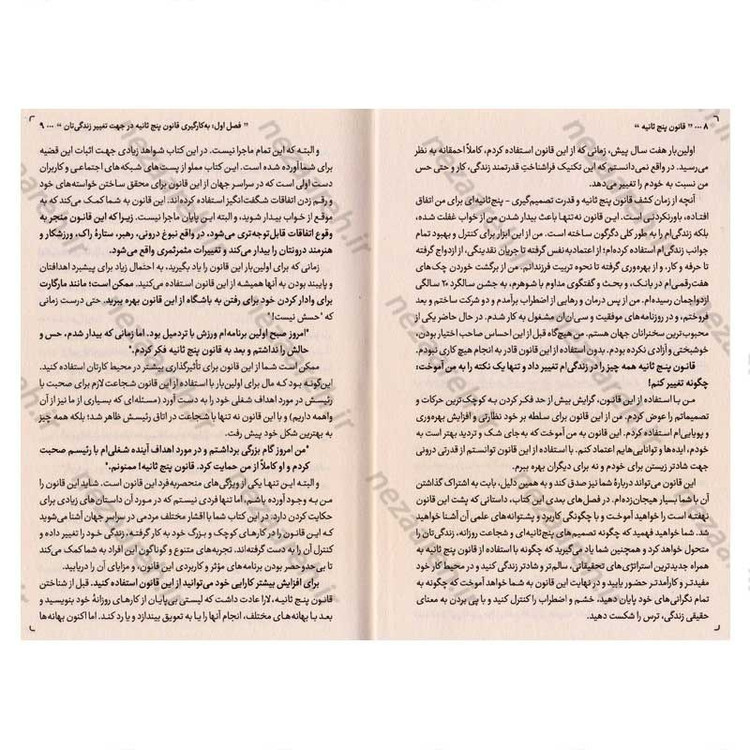 ۸ ... " قانون پنج ثانیه "
اولین‌بار هفت سال پیش، زمانی که از این قانون استفاده کردم، کاملاً احمقانه به نظر
می‌رسید. در واقع نمی‌دانستم که این تکنیک فراشناختِ قدرتمند زندگی، کار و حتی حس
من نسبت به خودم را تغییر می‌دهد.
آنچه از زمان کشف قانون پنج ثانیه و قدرت تصمیم‌گیری - پنج‌ثانیه‌ای برای من اتفاق
افتاده، باورنکردنی است. این قانون نه‌تنها باعث بیدار شدن من از خواب غفلت شده،
بلکه زندگی‌ام را به طور کلی دگرگون ساخته است. من از این ابزار برای کنترل و بهبود تمام
جوانب زندگی‌ام استفاده کرده‌ام؛ از اعتمادبه‌نفس گرفته تا جریان نقدینگی، از ازدواج گرفته
تا حرفه و کار، و از بهره‌وری گرفته تا نحوه تربیت فرزندانم. من از برگشت خوردن چک‌های
هفت‌رقمی‌ام در بانک، و بحث و گفتگوی مداوم با شوهرم، به جشن سالگرد ۲۰ سالگی
ازدواجمان رسیده‌ام. من از پس درمان و رهایی از اضطراب برآمدم و دو شرکت ساختم و بعد
فروختم، و در روزنامه‌های موفقیت و سی‌ان‌ان مشغول به کار شدم. در حال حاضر یکی از
محبوب‌ترین سخنرانان جهان هستم. من هیچ‌گاه قبل از این احساس صاحب اختیار بودن،
خوشبختی و آزادی نکرده بودم. بدون استفاده از این قانون قادر به انجام هیچ کاری نبودم.
قانون پنج ثانیه همه چیز را در زندگی‌ام تغییر داد و تنها یک نکته را به من آموخت:
چگونه تغییر کنم!
من با استفاده از این قانون، گرایش بیش از حد فکر کردن به کوچک‌ترین حرکات و
تصمیماتم را عوض کردم. من از این قانون برای سلطه بر خود نظارتی و افزایش بهره‌وری
و پویایی‌ام استفاده کردم. این قانون به من آموخت که به‌جای شک و تردید بهتر است به
خودم، ایده‌ها و توانایی‌هایم اعتماد کنم. با استفاده از این قانون توانستم از قدرتی درونی
جهت شادتر زیستن برای خودم و نه برای دیگران بهره ببرم.
این قانون می‌تواند دربارهٔ شما نیز صدق کند و به همین دلیل، بابت به اشتراک گذاشتن
آن با شما بسیار هیجان‌زده‌ام. در فصل‌های بعدی این کتاب، داستانی که پشت این قانون
نهفته است را خواهید آموخت و با چگونگی کاربرد و پشتوانه‌های علمی آن آشنا خواهید
شد. شما خواهید فهمید که چگونه تصمیم‌های پنج‌ثانیه‌ای و شجاعت روزانه، زندگی‌تان را
متحول خواهد کرد و همچنین شما یاد می‌گیرید که چگونه با استفاده از قانون پنج ثانیه به
همراه جدیدترین استراتژی‌های تحقیقاتی، سالم‌تر و شادتر زندگی کنید و در محیط کار خود
مفیدتر و کارآمدتر حضور یابید و در نهایت این قانون به شما خواهد آموخت که چگونه به
تمام نگرانی‌های خود پایان دهید، خشم و اضطراب را کنترل کنید و با پی بردن به معنای
حقیقی زندگی، ترس را شکست دهید.
" فصل اول: به‌کارگیری قانون پنج ثانیه در جهت تغییر زندگی‌تان " ... ۹
و البته که این تمام ماجرا نیست. در این کتاب شواهد زیادی جهت اثبات این قضیه
برای شما آورده شده است. این کتاب مملو از پست‌های شبکه‌های اجتماعی و کاربران
دست اولی است که در سراسر جهان از این قانون برای محقق ساختن خواسته‌های خود
و رقم زدن اتفاقات شگفت‌انگیز استفاده کرده‌اند. این قانون به شما کمک می‌کند که به
موقع از خواب بیدار شوید، و البته این پایان ماجرا نیست. زیرا که این قانون منجر به
وقوع اتفاقات قابل‌توجه‌تری می‌شود، در واقع نبوغ درونی، رهبر، ستارهٔ راک، ورزشکار و
هنرمند درونتان را بیدار می‌کند و تغییرات مثمرثمری واقع می‌شود.
زمانی که برای اولین‌بار این قانون را یاد بگیرید، به احتمال زیاد برای پیشبرد اهدافتان
و پایبند بودن به آنها همیشه از این قانون استفاده می‌کنید. ممکن است؛ مانند مارگارت
برای وادار کردن خود برای رفتن به باشگاه از این قانون بهره ببرید. حتی درست زمانی
که "حسش نیست!"
"امروز صبح اولین برنامه‌ام ورزش با تردمیل بود. اما زمانی که بیدار شدم، حس و
حالش را نداشتم و بعد به قانون پنج ثانیه فکر کردم."
ممکن است شما از این قانون برای تأثیرگذاری بیشتر در محیط کارتان استفاده کنید.
این‌گونه بود که مال برای اولین‌بار با استفاده از این قانون شجاعت لازم برای صحبت با
رئیسش در مورد اهداف شغلی خود را به دست آورد (مسئله‌ای که بسیاری از ما نیز از آن
واهمه داریم) و با این قانون نه تنها با شجاعت در اتاق رئیسش ظاهر شد؛ بلکه همه چیز
به بهترین شکل خود پیش رفت.
"من امروز گام بزرگی برداشتم و در مورد اهداف آینده شغلی‌ام با رئیسم صحبت
کردم و او کاملاً از من حمایت کرد. قانون پنج ثانیه! ممنونم."
و البته این تنها یکی از ویژگی‌های منحصربه‌فرد این قانون است. شاید این قانون را
من به وجود آورده باشم، اما تنها فردی نیستم که در مورد آن داستان‌های زیادی برای
حکایت کردن دارد. در این کتاب شما با اقشار مختلف مردمی در سراسر جهان آشنا می‌شوید
که این قانون را در کارهای کوچک و بزرگ خود به کار گرفته، زندگی خود را تغییر داده و
کنترل آن را به دست گرفته‌اند. تجربه‌های متنوع و گوناگون این افراد به شما کمک می‌کند
تا بی‌حدوحصر بودن برنامه‌های مؤثر و کاربردی این قانون، و مزایای آن را دریابید.
برای افزایش بیشتر کارایی خود می‌توانید از این قانون استفاده کنید. قبل از شناختن
قانون پنج ثانیه، لارا عادت داشت که لیستی بی‌پایان از کارهای روزانهٔ خود بنویسید و
بعد با بهانه‌های مختلف، انجام آنها را یا به تعویق بیندازد و یا رد کند. اما اکنون بهانه‌ها